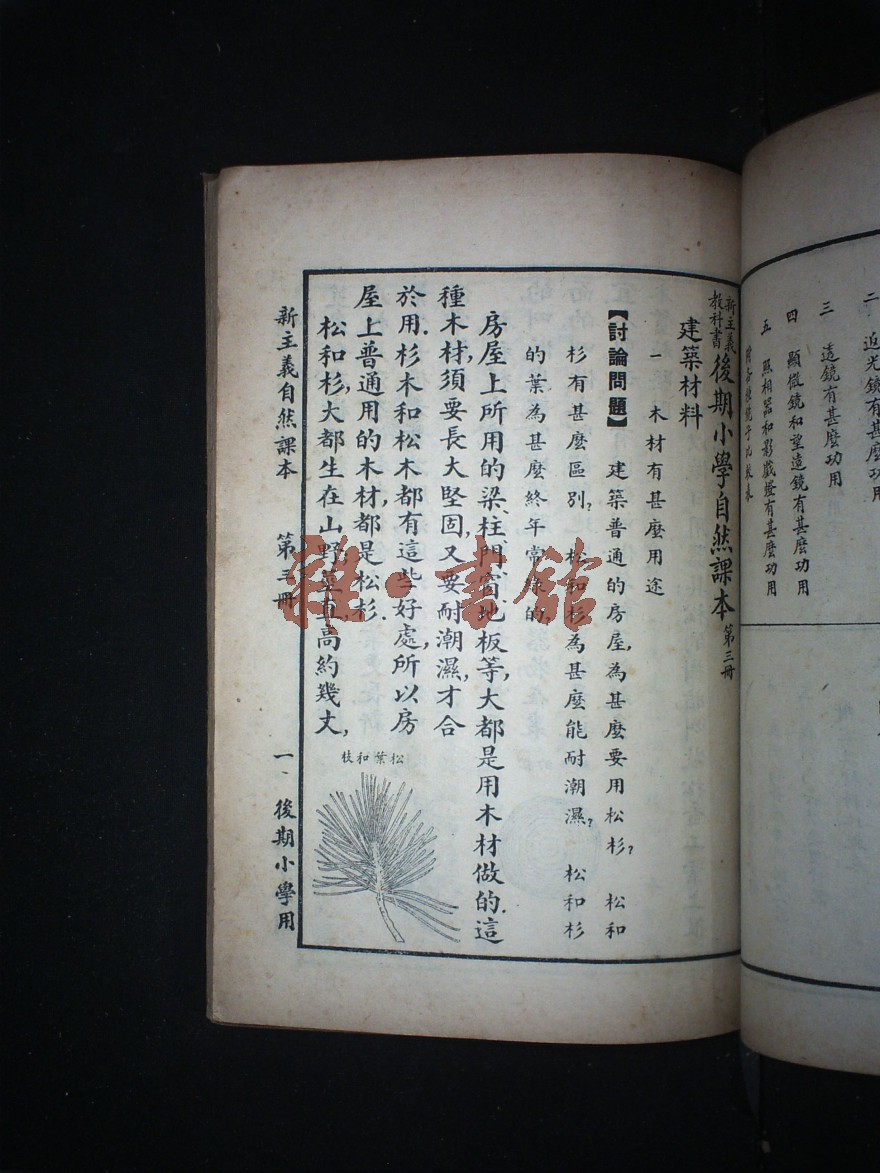 二 近光鏡有甚麼功用
三 遠鏡有甚麼功用
四 顯微鏡和望遠鏡有甚麼功用
五 照相器和影戲燈有甚麼功用
新主義教科書 後期小學自然課本 第三冊
建築材料
一 木材有甚麼用途
【討論問題】 建築普通的房屋,為甚麼要用松杉? 松和
杉有甚麼區別? 松和杉為甚麼能耐潮濕? 松和杉
的葉為甚麼終年常綠的?
房屋上所用的梁、柱、門、窗、地板等,大都是用木材做的.這
種木材,須要長大堅固,又要耐潮濕,才合
於用.杉木和松木都有這些好處,所以房
屋上普通用的木材,都是松杉.
松和杉,大都生在山野,莖直,高約幾丈,
松葉和枝
新主義自然課本 第三冊 一 後期小學用
雜·書館